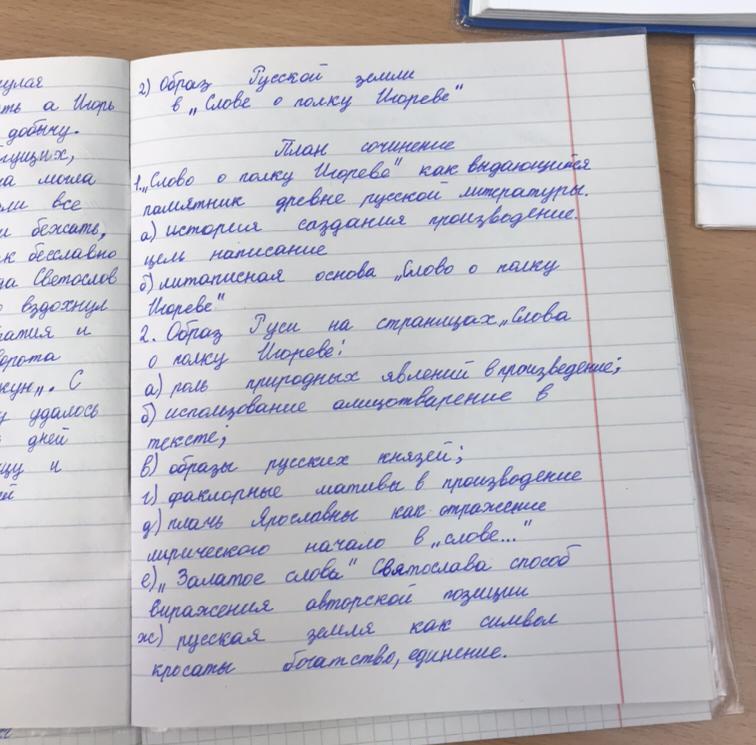 нулая
ть а Игорь
добычу.
гущих,
а могла
ли все
и бежать,
к бесславно
да Светослов
о вздохнул
атия и
ворота
кун„. С
у удалось
дней
цу и
ий
2) Образ Русской земли
в „Слове о полку Игореве"
План сочинение
1. „Слово о полку Игореве" как выдающийся
памятник древне русской литературы.
а) история саздания произведение.
цель написание
б) литаписная основа „Слово о полку
Игореве"
2. Образ Руси на страницах „Слова
о полку Игореве:
а) роль природных явлений в произведение;
б) использование алицотварение в
тексте;
в) образы русских князей;
г) факлорные мативы в произведение
д) плачь Ярославны как отражение
лирического начало в „слове..."
е) „Залатое слова" Святослава способ
виражения авторской позиции
ж) русская земля как символ
кросаты богатство, единение.